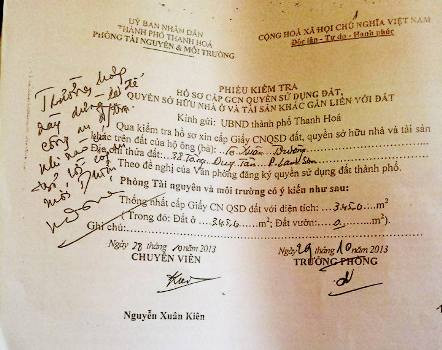 UỶ BAN NHÂN DÂN
THÀNH PHỐ THANH HOÁ
PHÒNG TÀI NGUYÊN & MÔI TRƯỜNG
CỘNG HOÀ XÃ HỘI CHỦ NGHĨA VIỆT NAM
Độc lập - Tự do - Hạnh phúc
PHIẾU KIỂM TRA
HỒ SƠ CẤP GCN QUYỀN SỬ DỤNG ĐẤT,
QUYỀN SỞ HỮU NHÀ Ở VÀ TÀI SẢN KHÁC GẮN LIỀN VỚI ĐẤT
Kính gửi: UBND thành phố Thanh Hoá
Qua kiểm tra hồ sơ xin cấp Giấy CNQSD đất, quyền sở hữu nhà và tài sản
khác trên đất của hộ ông (bà): Xuân
Địa chỉ thửa đất: 38 Tống Duy Tân P. Lam Sơn
Theo đề nghị của Văn phòng đăng ký quyền sử dụng đất thành phố.
Phòng Tài nguyên và môi trường có ý kiến như sau:
Thống nhất cấp Giấy CN QSD đất với diện tích: 345,0 m2
( Trong đó: Đất ở 345,0 m2; Đất vườn: 0 m2)
Ghi chú:
Ngày 28 tháng 10 năm 2013
CHUYÊN VIÊN
Ngày 29 tháng 10 năm 2013
TRƯỞNG PHÒNG
Nguyễn Xuân Kiên
Trường hợp